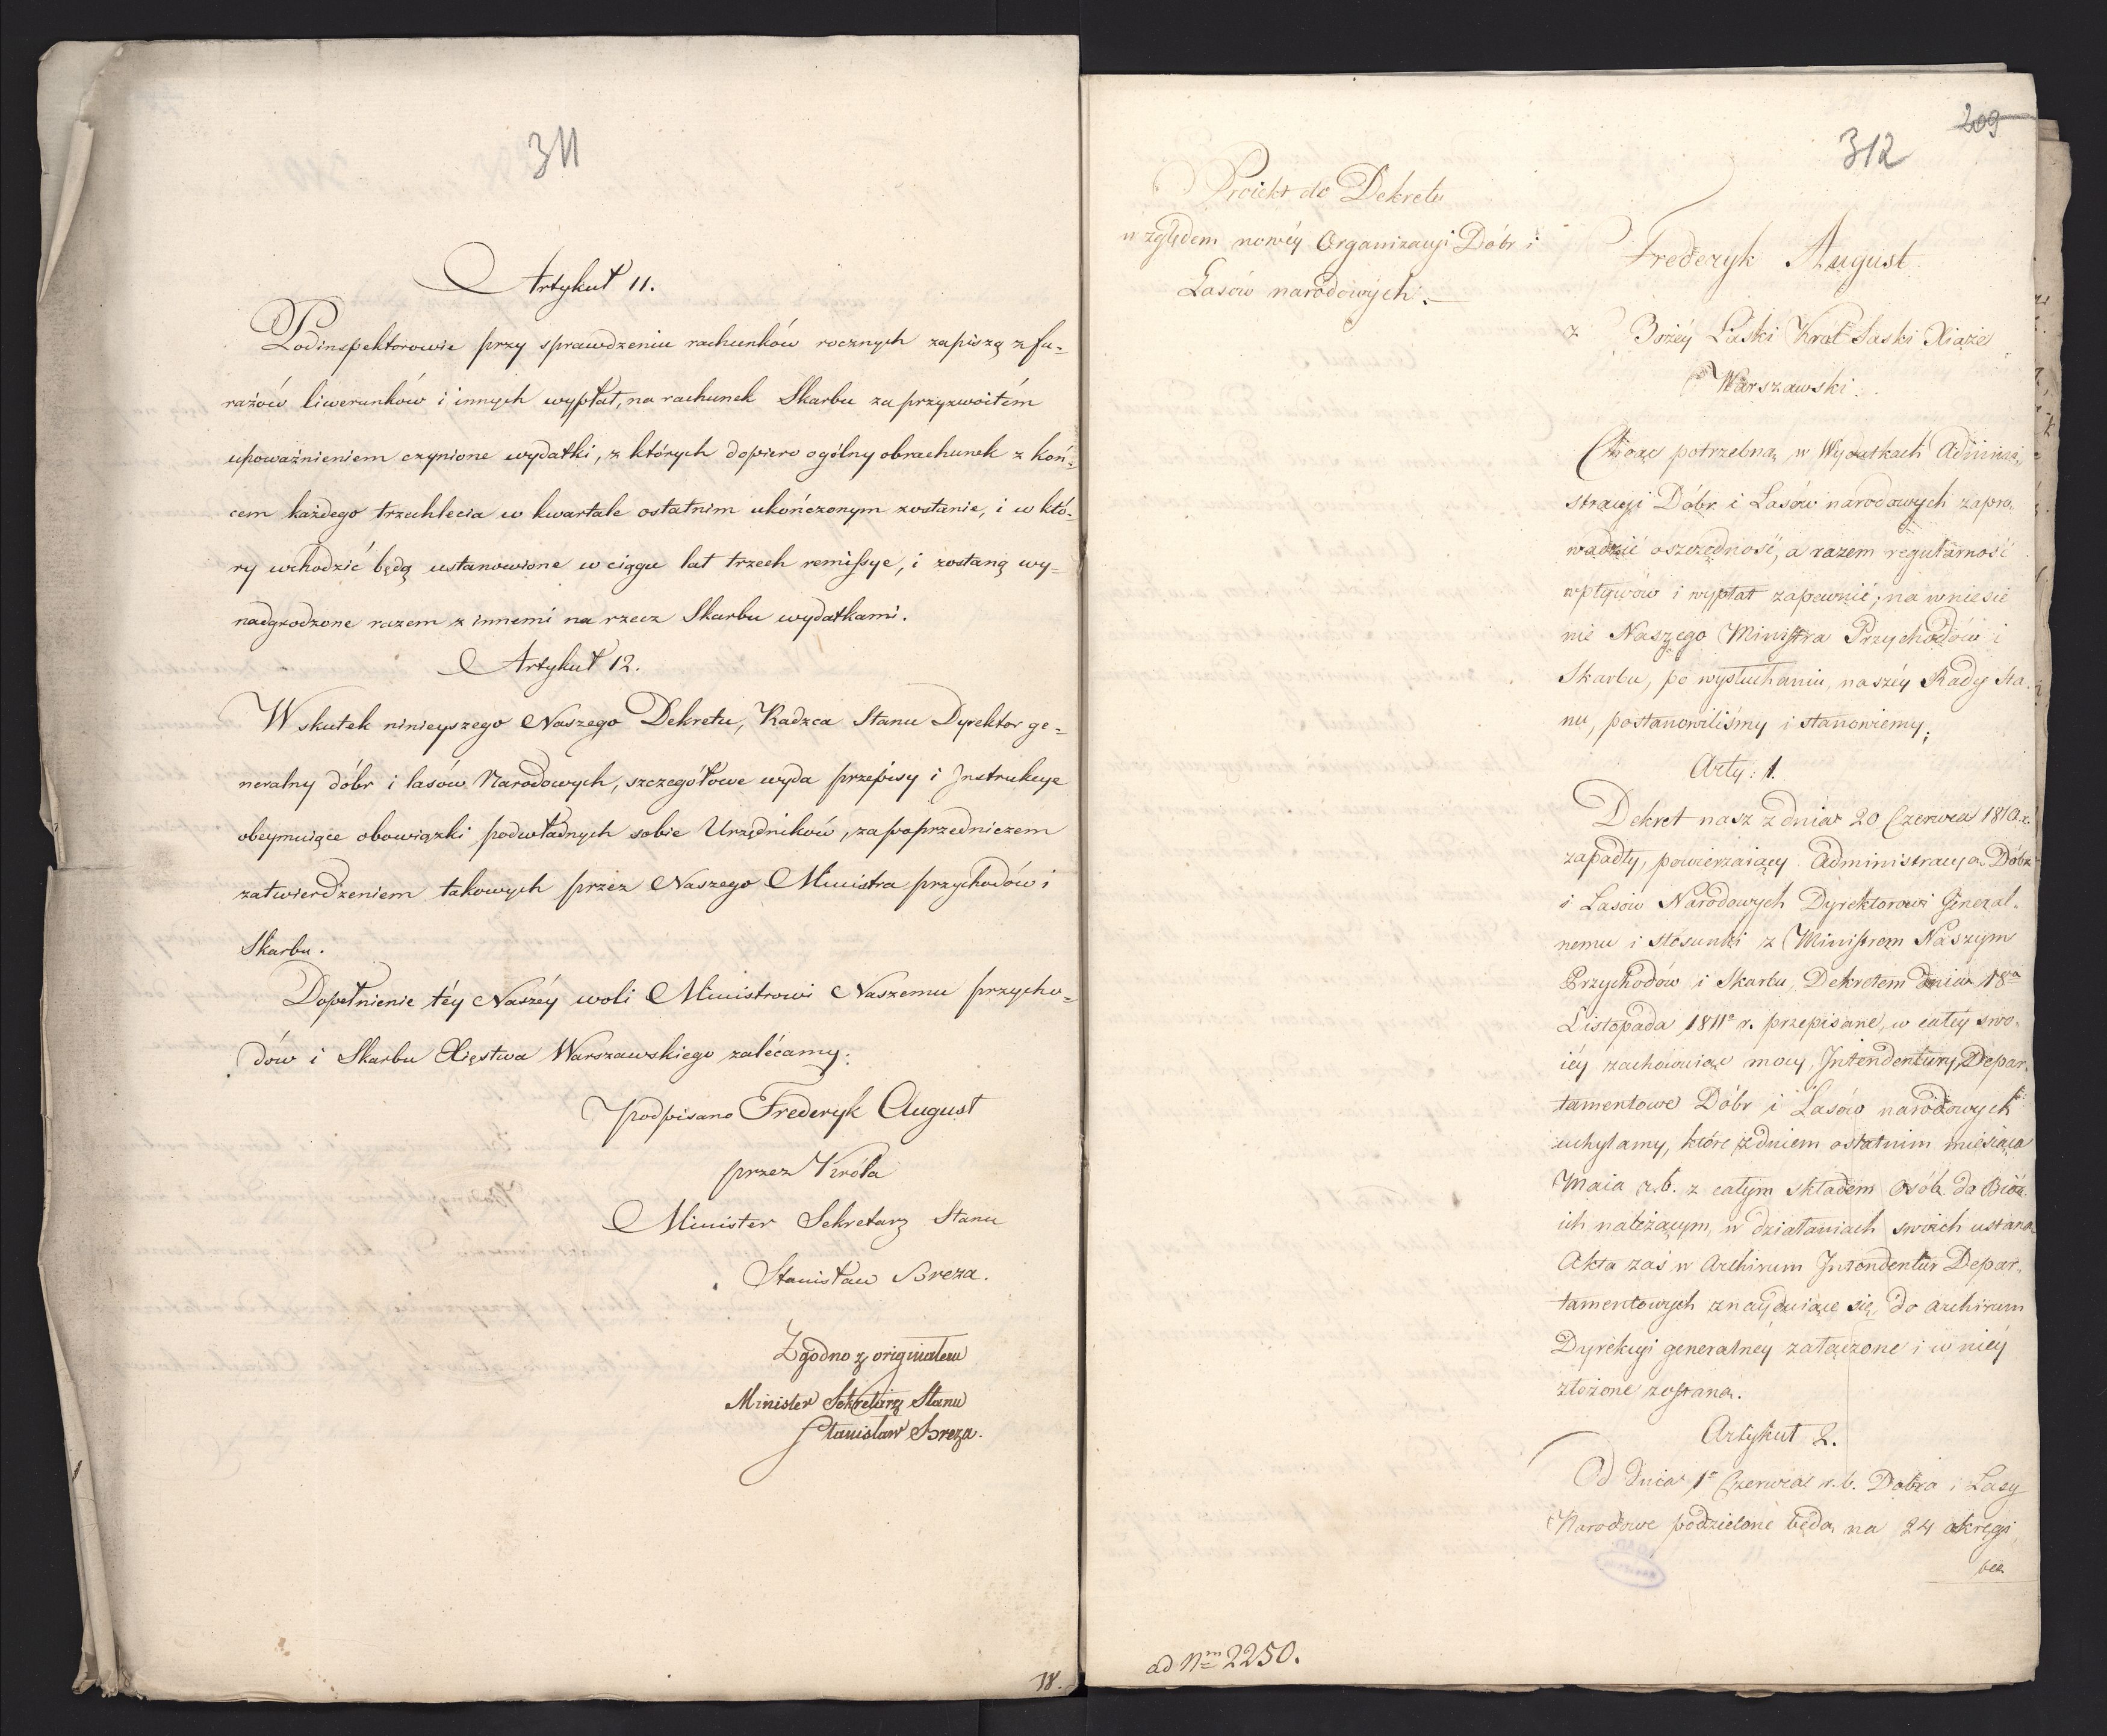 311
Artykuł 11.
Podinspektorowie przy sprawdzeniu rachunków rocznych zapiszą z fu=
rażów liwerunków i innych wypłat, na rachunek Skarbu za przyzwoitém
upoważnieniem czynione wydatki, z których dopiero ogólny obrachunek z koń=
cem każdego trzechlecia w kwartale ostatnim ukończonym zostanie, i w któ=
ry wchodzić będą ustanowione w ciągu lat trzech remissye, i zostaną wy=
nadgrodzone razem z innemi na rzecz Skarbu wydatkami.
Artykuł 12.
W skutek ninieyszego Naszego Dekretu, Radzca Stanu Dyrektor ge=
neralny dóbr i lasów Narodowych, szczegółowe wyda przepisy i Instrukcye
obeymuiące obowiązki podwładnych sobie Urzędników, za poprzedniczem
zatwierdzeniem takowych przez Naszego Ministra przychodów i
Skarbu.
Dopełnienie téy Naszéy woli Ministrowi Naszemu przycho=
dów i Skarbu Xięstwa Warszawskiego zalécamy.
Podpisano Frederyk August
przez Króla
Minister Sekretarz Stanu
Stanisław Breza.
Zgodno z originałem
Minister Sekretarz Stanu
Stanisław Breza.
18.
209
312
Proiekt do Dekretu
względem nowéy Organizacyi Dóbr i
Lasów narodowych.
Frederyk August
z Bożéy Łaski Król Saski Xiąże
Warszawski.
Chcąc potrzebną w Wydatkach Admini=
stracyi Dóbr i Lasów narodowych zapro=
wadzić oszczędność, a razem regularność
wpływów i wypłat zapewnić, na wniesie
nie Naszego Ministra Przychodów i
Skarbu, po wysłuchaniu naszéy Rady Sta=
nu, postanowiliśmy i stanowiemy;
Arty: 1.
Dekret nasz z dnia 20 Czerwca 1810. r.
zapadły, powierzaiący Administracyą Dóbr
i Lasów Narodowych Dyrektorowi General=
nemu i stosunki z Ministrem Naszym
Przychodów i Skarbu, Dekretem dnia 18a
Listopada 1811o r. przepisane, w całéy swo=
iéy zachowuiąc mocy, Intendentury Depar=
tamentowe Dóbr i Lasów narodowych
uchylamy, które z dniem ostatnim miesiąca
Maia r. b. z całym składem osób do Biór
ich należącym, w działaniach swoich ustaną
Akta zaś w Archiwum Intendentur Depar=
tamentowych znayduiące się, do archiwum
Dyrekcyi generalnéy załączone i w niéy
złożone zostaną.
Artykuł 2.
Od dnia 1o Czerwca r. b. Dobra i Lasy
Narodowe podzielone będą na 24 okręgi
ad Nrm 2250.